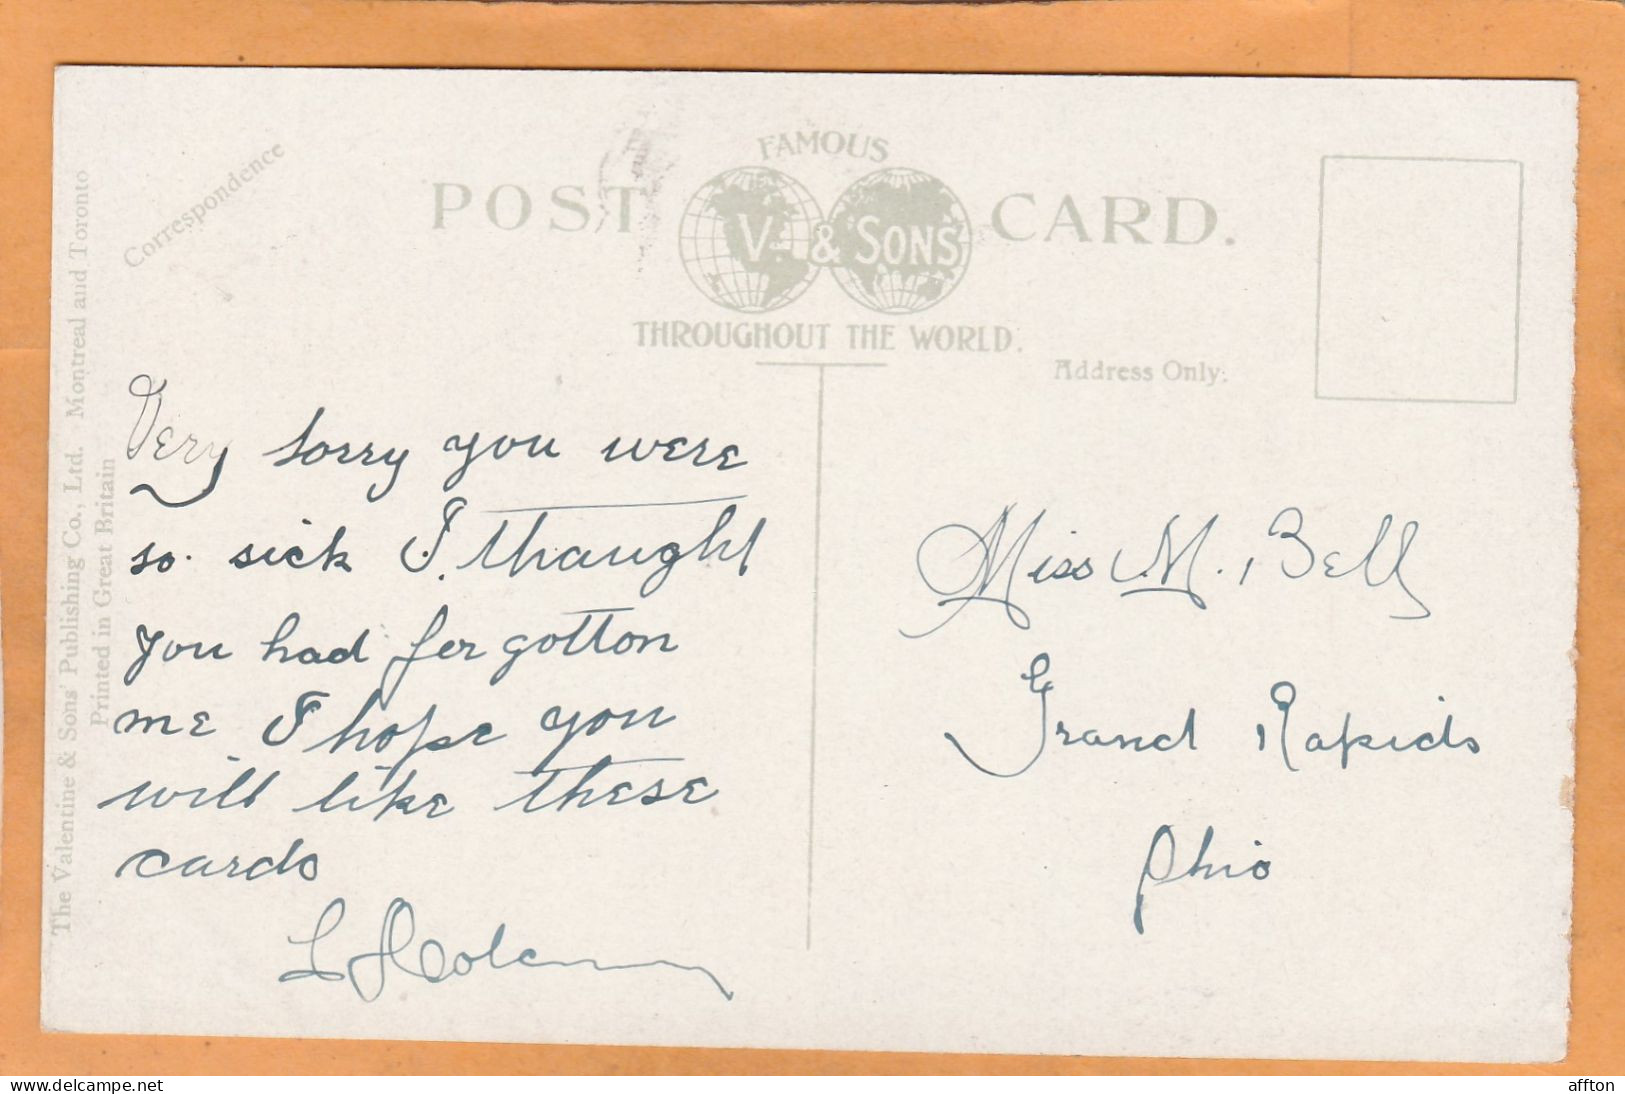 Correspondence
POST CARD.
FAMOUS
V. & SONS
THROUGHOUT THE WORLD.
Address Only.
The Valentine & Sons' Publishing Co., Ltd. Montreal and Toronto
Printed in Great Britain
Very sorry you were
so sick I thaught
you had for gotton
me I hope you
will like these
cards
Miss M. Bell
Grand Rapids
Ohio
affton